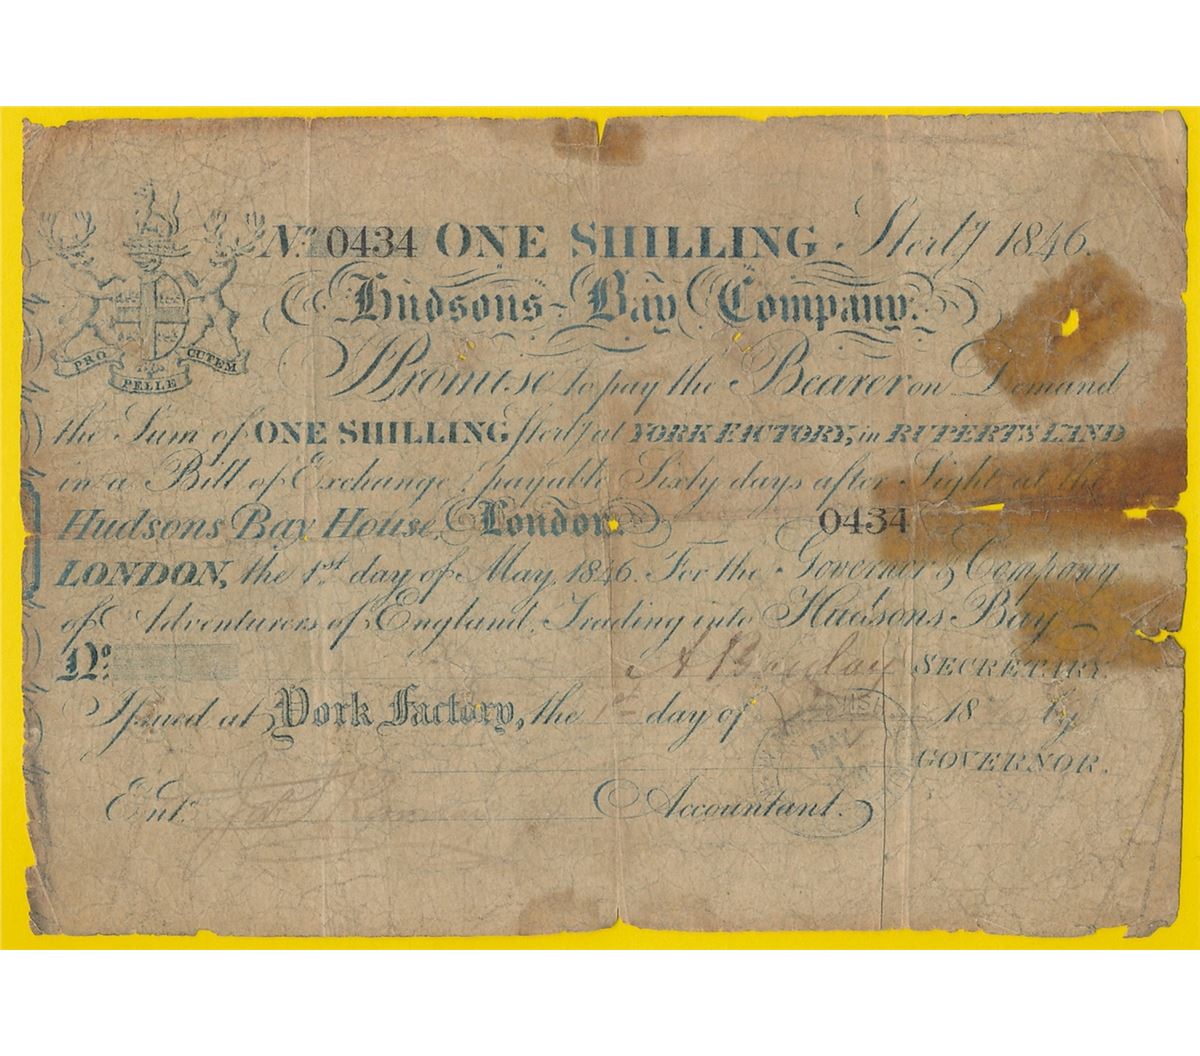 PRO PELLE CUTEM
No. 0434 ONE SHILLING Sterlg 1846.
Hudsons Bay Company.
I Promise to pay the Bearer on Demand
the Sum of ONE SHILLING Sterlg at YORK FACTORY, in RUPERTS LAND
in a Bill of Exchange payable Sixty days after Sight at the
Hudsons Bay House, London. 0434
LONDON, the 1st day of May, 1846. For the Governor & Company
of Adventurers of England, Trading into Hudsons Bay
No. A Barclay SECRETARY.
Issued at York Factory, the 1st day of 18 by
GOVERNOR.
MAY
1
Entd. Accountant.